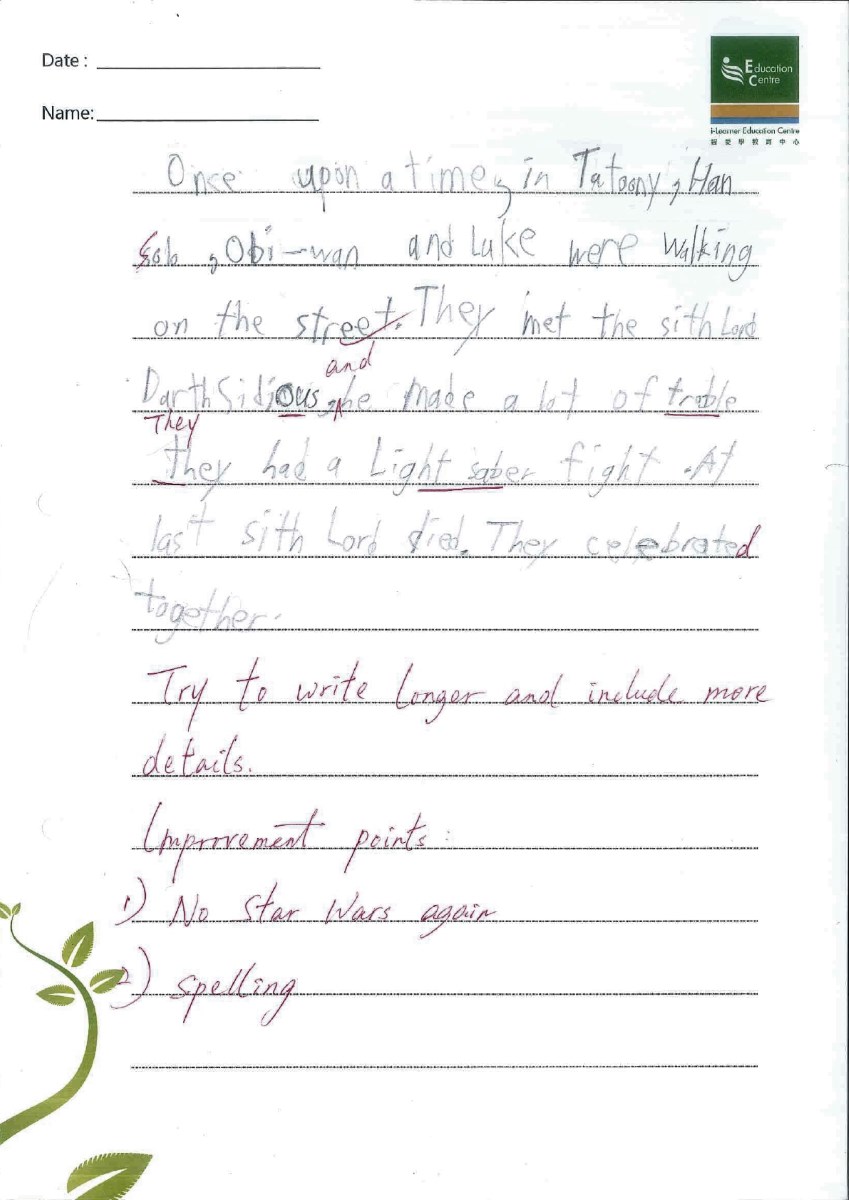 Date :
Name:
Education
Centre
i-Learner Education Centre
Once upon a time, in Tatoony, Han
Solo, Obi-wan and Luke were walking
on the street. They met the sith Lord
and
Darth Sidious, he made a lot of troble
They
they had a Light saber fight. At
last sith Lord died. They celebrated
together.
Try to write longer and include more
details.
Improvement points:
1) No Star Wars again
2) spelling